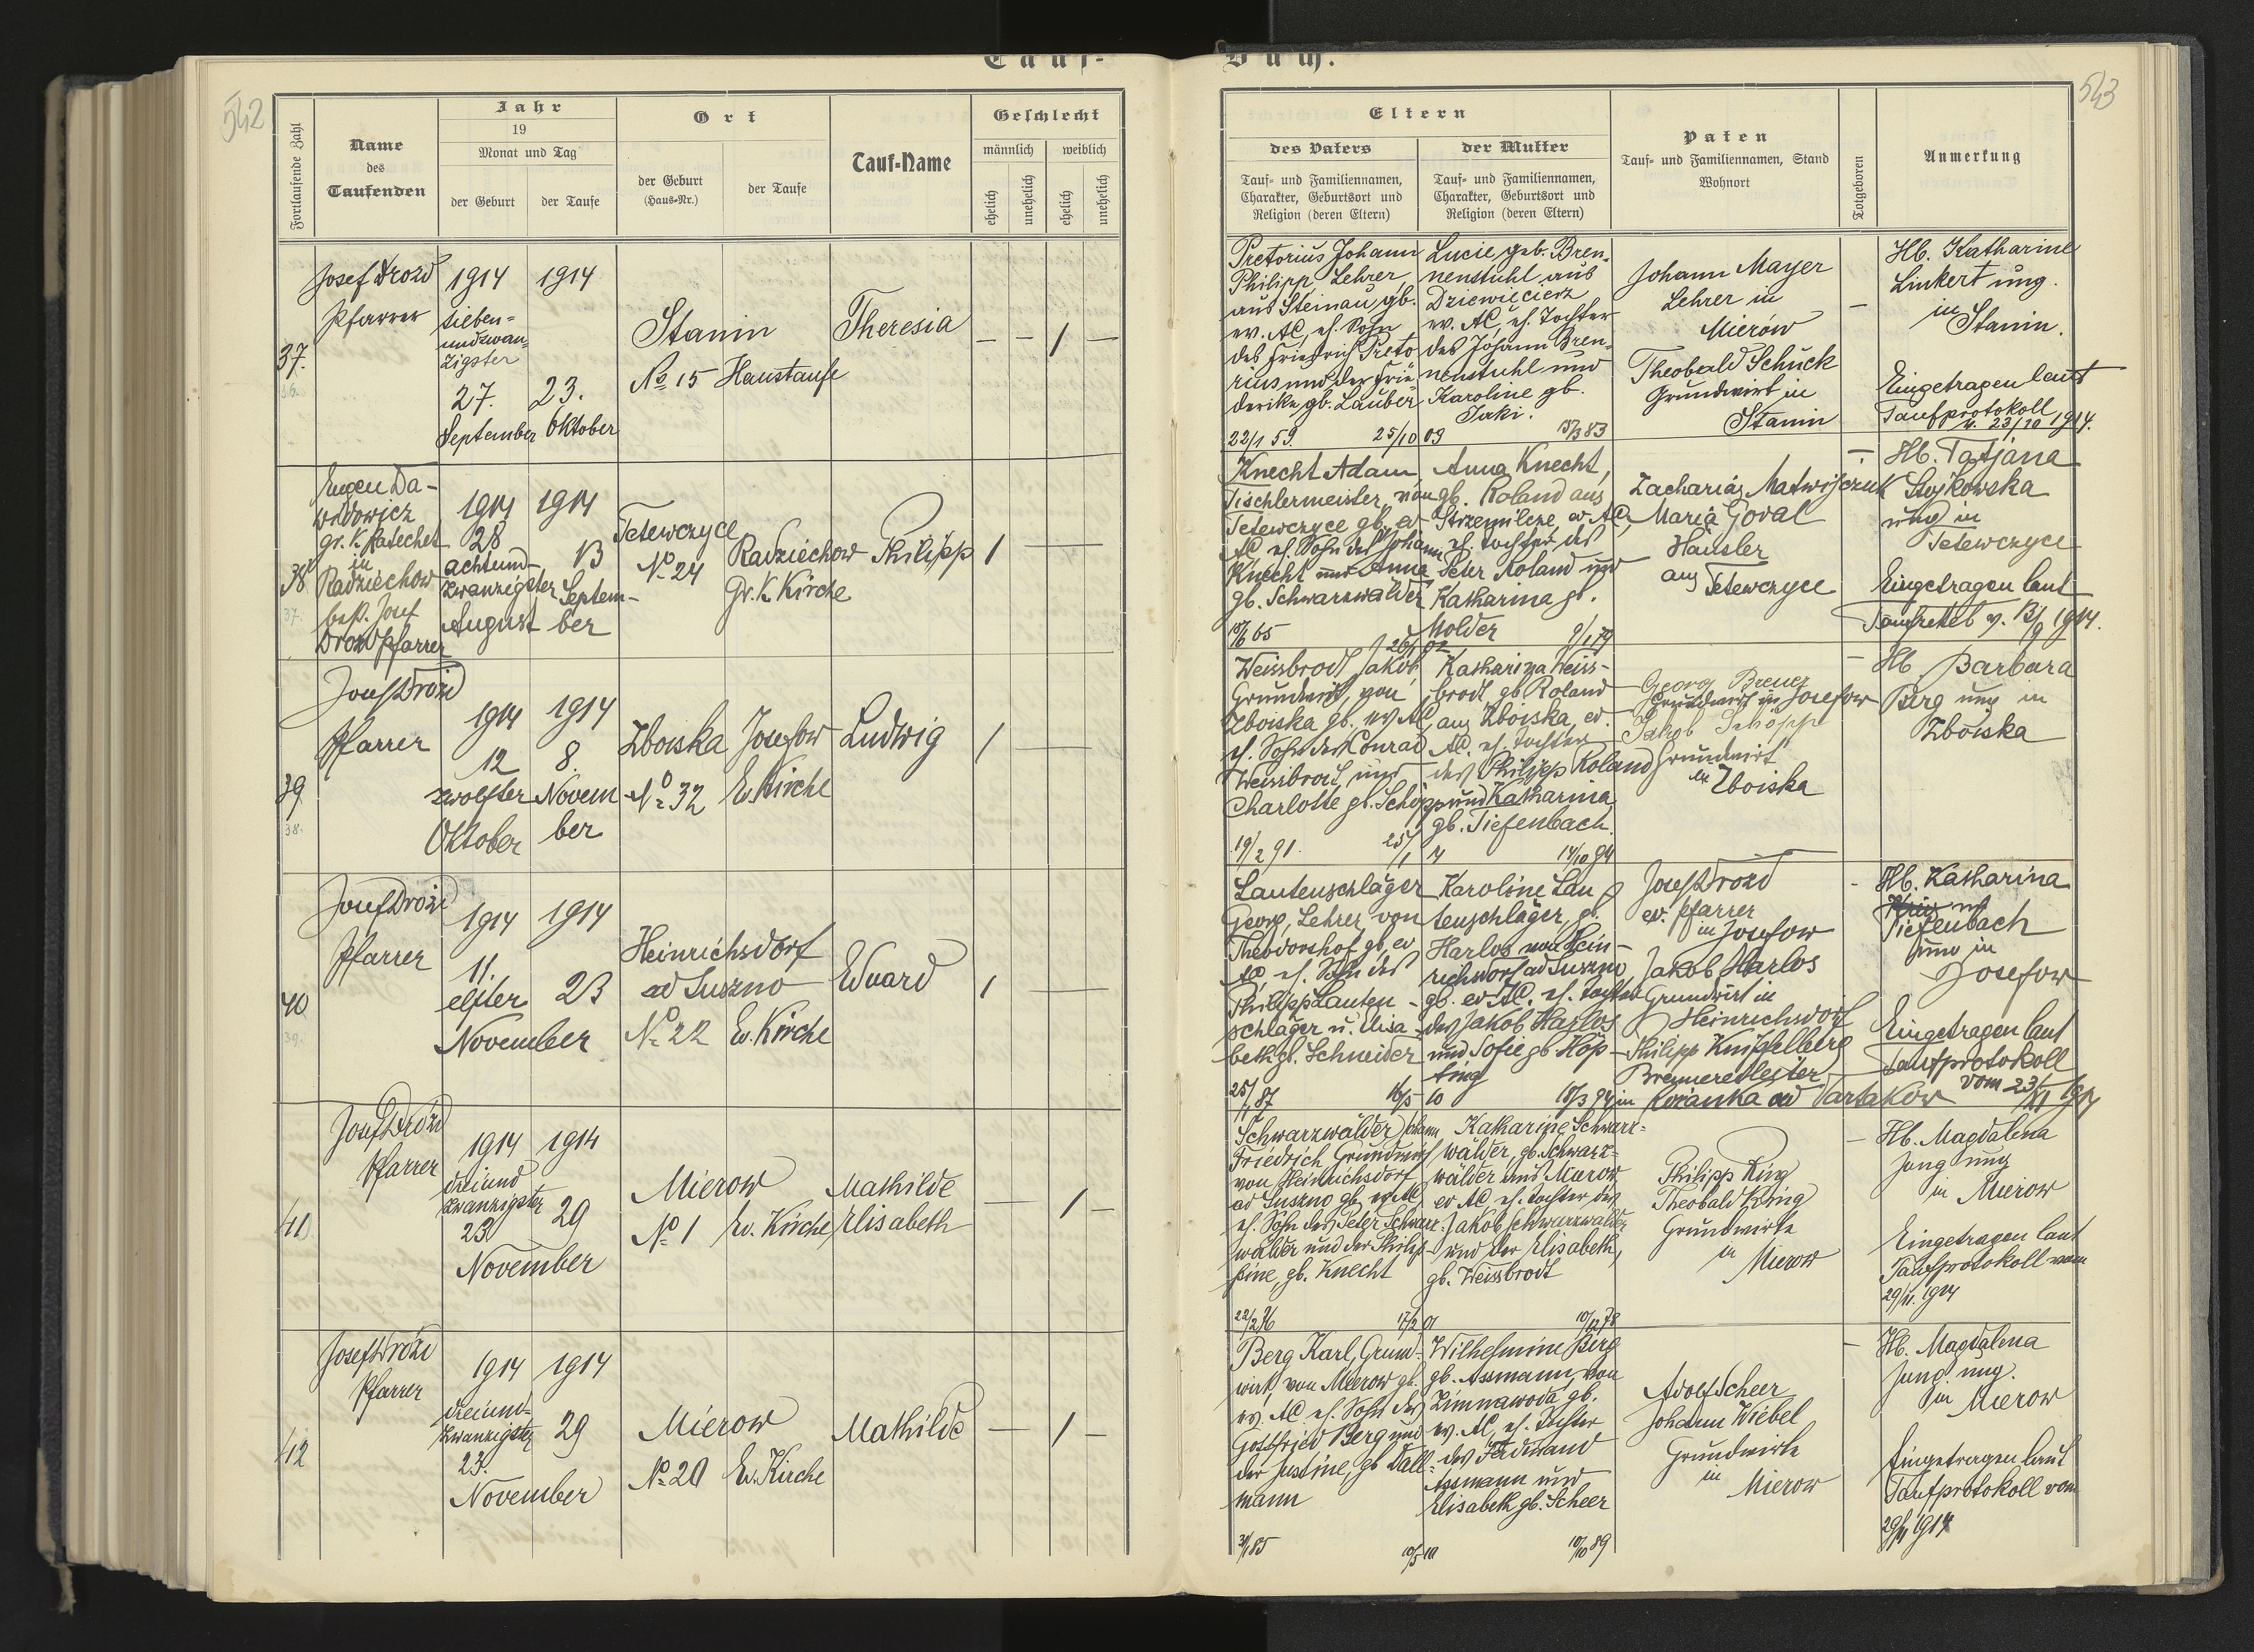 542
Tauf-
Fortlaufende Zahl
Name
des
Taufenden
Jahr
19
Monat und Tag
der Geburt
der Taufe
Ort
der Geburt
(Haus-Nr.)
der Taufe
Tauf-Name
Geschlecht
männlich
weiblich
ehelich
unehelich
ehelich
unehelich
37.
36.
Josef Drozd
Pfarrer
1914
sieben-
undzwan-
zigster
27.
September
1914
23.
Oktober
Stanin
No 15
Haustaufe
Theresia
— — / —
38
37.
Eugen Da-
widowicz
gr. K. Katechet
in
Radziechow
Josef
Drozd Pfarrer
1914
28
achtund-
zwanzigster
August
1914
13
Septem-
ber
Tetewczyce
No 24
Radziechow
Gr. K. Kirche
Philipp
/ —
39
38.
Josef Drozd
Pfarrer
1914
12
zwölfter
Oktober
1914
8.
Novem
ber
Zboiska
No 32
Josefow
Ev. Kirche
Ludwig
/ —
40
39.
Josef Drozd
Pfarrer
1914
11.
elfter
November
1914
23
Heinrichsdorf
ad Suszno
No 22
Ev. Kirche
Eduard
/ —
41
Josef Drozd
Pfarrer
1914
dreiund
zwanzigster
23
November
1914
29
Mierow
No 1
Ev. Kirche
Mathilde
Elisabeth
— / —
42
Josef Drozd
Pfarrer
1914
dreiund-
zwanzigster
23.
November
1914
29
Mierow
No 20
Ev. Kirche
Mathilde
— / —
Buch.
543
Eltern
des Vaters
Tauf- und Familiennamen,
Charakter, Geburtsort und
Religion (deren Eltern)
der Mutter
Tauf- und Familiennamen,
Charakter, Geburtsort und
Religion (deren Eltern)
Paten
Tauf- und Familiennamen, Stand
Wohnort
Totgeboren
Anmerkung
Pretorius Johann
Philipp, Lehrer,
aus Steinau, gb.
ev. AC, eh. Sohn
des Friedrich Preto
rius und der Frie-
derike, gb. Lauber
22/1 59.
25/10 09
Lucie, geb. Bren-
nenstuhl aus
Dziewięcierz
ev. AC, eh. Tochter
des Johann Bren-
nenstuhl und
Karoline gb.
Jaki.
15/3 83
Johann Mayer
Lehrer in
Mierów
Theobald Schuck
Grundwirt in
Stanin
—
Hb. Katharine
Linkert ung.
in
Stanin.
Eingetragen laut
Taufprotokoll
v. 23/10 1914.
Knecht Adam,
Tischlermeister, von
Tetewczyce gb. ev
AC, eh. Sohn des Johann
Knecht und Anna
gb. Schwarzwälder
65
Anna Knecht,
gb. Roland aus
Strzemilcze, ev AC,
eh. Tochter des
Peter Roland und
Katharina gb.
Molder
Zacharias Matwijczuk
Maria Goval
Häusler
aus Tetewczyce
—
Hb. Tatjana
Stojkowska
ung in
Tetewczyce
Eingetragen laut
v. 13/9 1914.
Weissbrodt Jakob,
Grundwirt, von
Zboiska gb. ev AC,
eh. Sohn des Conrad
Weissbrodt und
Charlotte gb. Schöpp
19/2 91.
25/1 14
Katharina Weiss-
brodt gb Roland
aus Zboiska, ev.
AC. eh. Tochter
des Philipp Roland
und Katharina
gb. Tiefenbach.
14/10 94
Georg Breuer
Grundwirt in Josefow
Jakob Schöpp
Grundwirt
in Zboiska
—
Hb. Barbara
Berg ung in
Zboiska
Lautenschläger
Georg, Lehrer, von
Theodorshof, gb. ev
AC, eh. Sohn des
Philipp Lauten-
schläger u. Elisa-
beth gb. Schneider
25/1 87
16/5 10
Karoline Lau
tenschläger, gb.
Harlos von Hein-
richsdorf ad Suszno,
gb. ev AC. eh. Tochter
des Jakob Harlos
und Sofie gb Köp-
ting
18/3 94
Josef Drozd
ev. Pfarrer
in Josefow
Jakob Harlos
Grundwirt in
Heinrichsdorf
Philipp Knipfelberg
Brennereileiter
in Rożanka ad Tartakow
-
Hb. Katharina
Tiefenbach
ung in
Josefow
Eingetragen laut
Taufprotokoll
vom 23/XI 1914
Schwarzwälder Johann
Friedrich Grundwirt
von Heinrichsdorf
ad Suszno gb. ev AC,
eh. Sohn des Peter Schwarz-
wälder und der Philip-
pine, gb. Knecht
22/2 76
17/2 01
Katharine Schwarz-
wälder, gb. Schwarz-
wälder aus Mierow
ev AC eh. Tochter des
Jakob Schwarzwälder
und der Elisabeth,
gb. Weissbrodt
10/12 78
Philipp King
Theobald King
Grundwirte
in
Mierow
—
Hb. Magdalena
Jung ung
in Mierow
Eingetragen laut
Taufprotokoll vom
29/11. 1914
Berg Karl, Grund-
wirt, von Mierow gb.
ev. AC. eh. Sohn des
Gottfried Berg und
der Justine, gb Dall-
mann
31/1 85
10/5 10
Wilhelmine Berg
gb. Assmann, von
Zimnawoda gb.
ev. AC, eh. Tochter
des Ferdinand
Assmann und
Elisabeth gb. Scheer
10/10 89
Adolf Scheer
Johann Wiebel
Grundwirte
in
Mierow
—
Hb. Magdalena
Jung ung.
in Mierow
Eingetragen laut
Taufprotokoll vom
29/11 1914